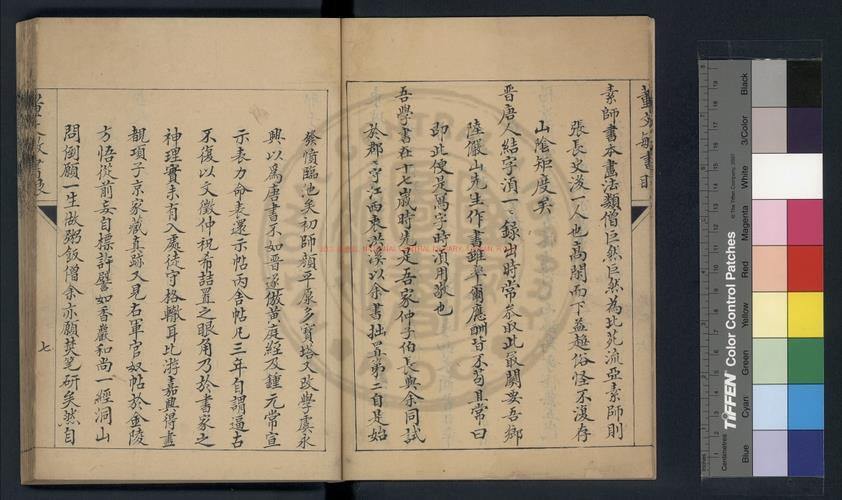 素師書本畫法類僧巨然巨然為北苑流亞素師則
張長史後一人也高閑而下益趨俗怪不復存
山陰矩度矣
晉唐人結字須一一錄出時常參取此最關要吾鄉
陸儼山先生作書雖率爾應酬皆不苟且常曰
即此便是寫字時須用敬也
吾學書在十七歲時先是吾家仲子伯長與余同試
於郡郡守江西衷洪溪以余書拙置第二自是始
發憤臨池矣初師顏平原多寶塔又改學虞永
興以為唐書不如晉遂倣黃庭經及鍾元常宣
示表力命表還示帖丙舍帖凡三年自謂逼古
不復以文徵仲祝希喆置之眼角乃於書家之
神理實未有入處徒守格轍耳比游嘉興得盡
覩項子京家藏真跡又見右軍官奴帖於金陵
方悟從前妄自標許譬如香巖和尚一經洞山
問倒願一生做粥飯僧余亦願焚筆研矣然自
七
TIFFEN Color Control Patches
© The Tiffen Company, 2007
Centimetres
Inches
Blue
Cyan
Green
Yellow
Red
Magenta
White
3/Color
Black